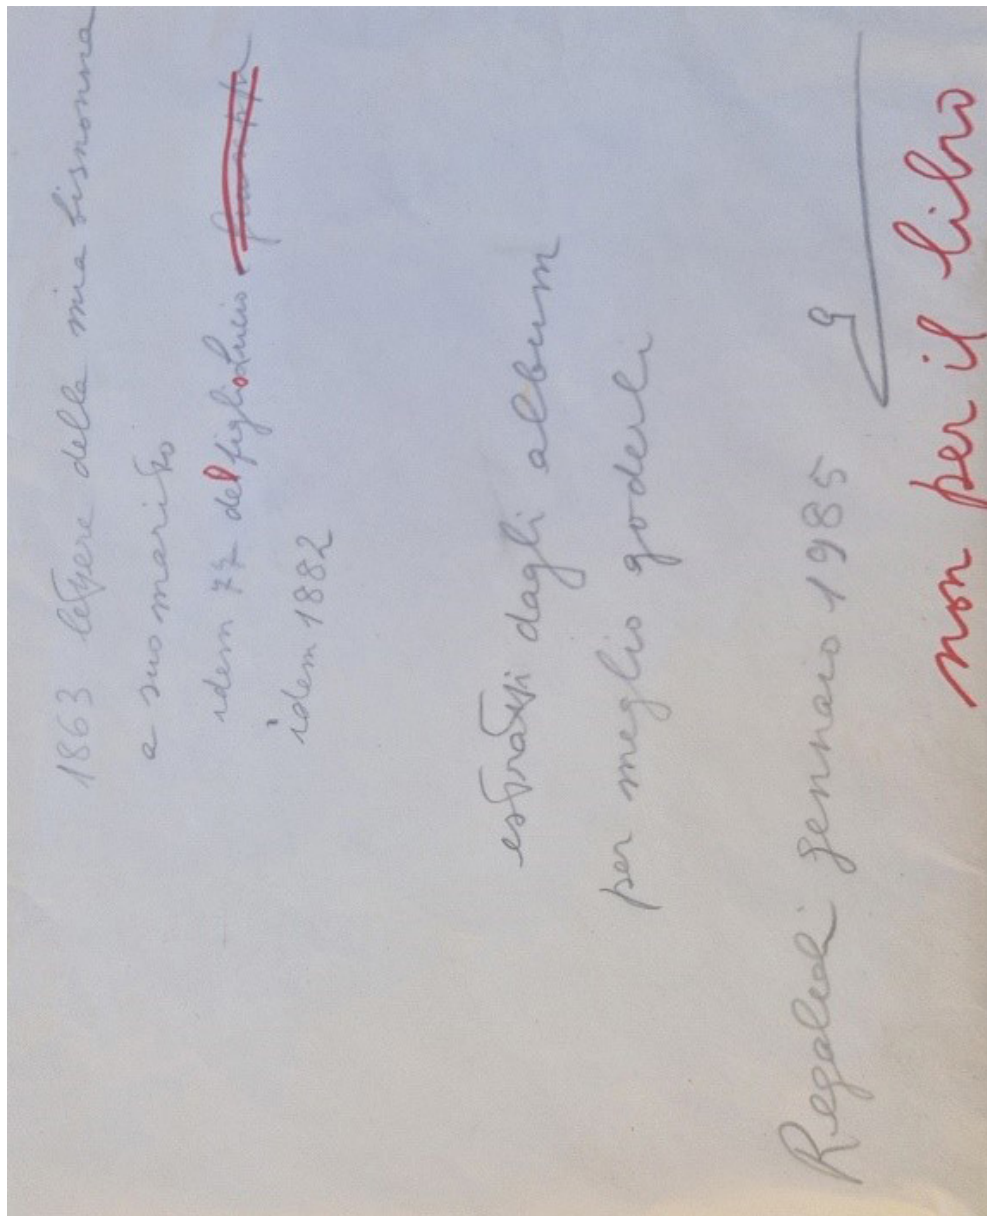 1863 lettere della mia bisnonna
a suo marito
idem 77 del figlio Lucio
idem 1882
estratti dagli album
per meglio goderli
Regaleali gennaio 1985
non per il libro